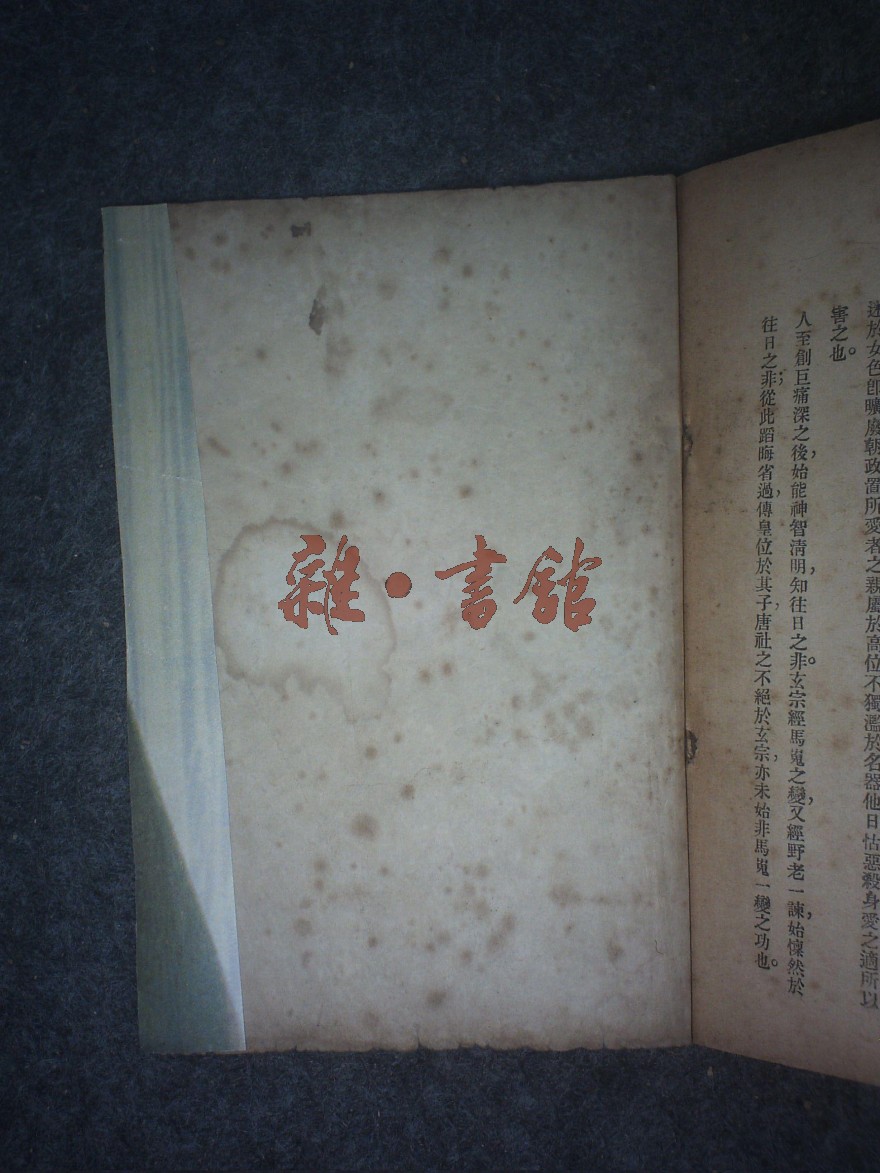 迷於女色卽曠廢朝政置所愛者之親屬於高位不獨濫於名器他日怙惡殺身愛之適所以
害之也。
人至創巨痛深之後，始能神智淸明，知往日之非。玄宗經馬嵬之變，又經野老一諫，始懍然於
往日之非；從此蹈晦省過，傳皇位於其子，唐社之不絕於玄宗，亦未始非馬嵬一變之功也。
雜·書館